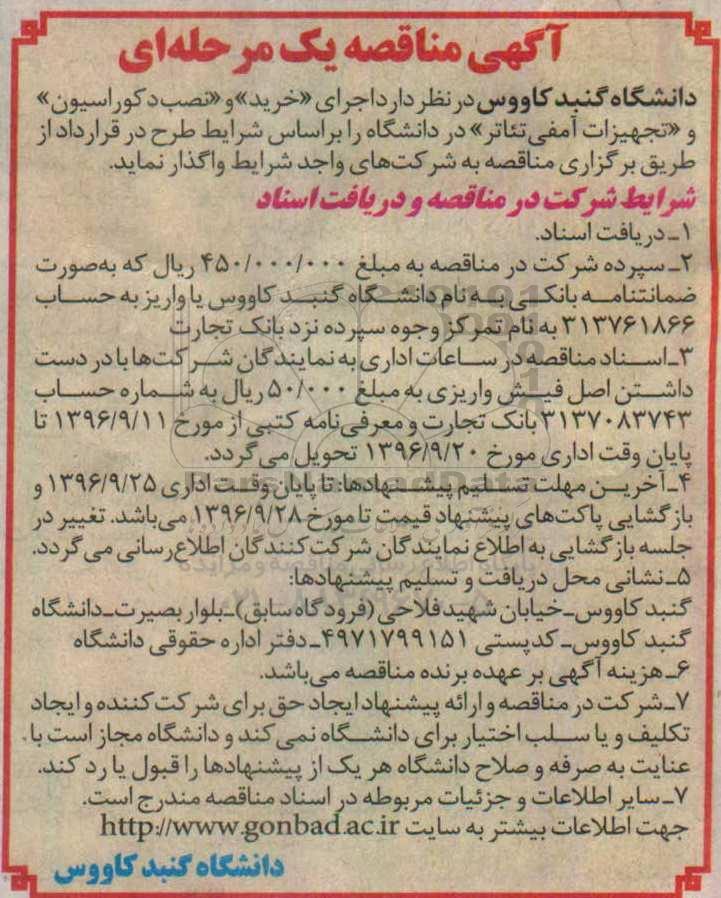 آگهی مناقصه یک مرحله‌ای
دانشگاه گنبد کاووس در نظر دارد اجرای «خرید» و «نصب دکوراسیون»
و «تجهیزات آمفی تئاتر» در دانشگاه را براساس شرایط طرح در قرارداد از
طریق برگزاری مناقصه به شرکت‌های واجد شرایط واگذار نماید.
شرایط شرکت در مناقصه و دریافت اسناد
۱ـ دریافت اسناد.
۲ـ سپرده شرکت در مناقصه به مبلغ ۴۵۰/۰۰۰/۰۰۰ ریال که به‌صورت
ضمانتنامه بانکی به نام دانشگاه گنبد کاووس یا واریز به حساب
۳۱۳۷۶۱۸۶۶ به نام تمرکز وجوه سپرده نزد بانک تجارت
۳ـ اسناد مناقصه در ساعات اداری به نمایندگان شرکت‌ها با در دست
داشتن اصل فیش واریزی به مبلغ ۵۰/۰۰۰ ریال به شماره حساب
۳۱۳۷۰۸۳۷۴۳ بانک تجارت و معرفی‌نامه کتبی از مورخ ۱۳۹۶/۹/۱۱ تا
پایان وقت اداری مورخ ۱۳۹۶/۹/۲۰ تحویل می‌گردد.
۴ـ آخرین مهلت تسلیم پیشنهادها: تا پایان وقت اداری ۱۳۹۶/۹/۲۵ و
بازگشایی پاکت‌های پیشنهاد قیمت تا مورخ ۱۳۹۶/۹/۲۸ می‌باشد. تغییر در
جلسه بازگشایی به اطلاع نمایندگان شرکت‌کنندگان اطلاع‌رسانی می‌گردد.
۵ـ نشانی محل دریافت و تسلیم پیشنهادها:
گنبد کاووس ـ خیابان شهید فلاحی (فرودگاه سابق) ـ بلوار بصیرت ـ دانشگاه
گنبد کاووس ـ کدپستی ۴۹۷۱۷۹۹۱۵۱ ـ دفتر اداره حقوقی دانشگاه
۶ـ هزینه آگهی بر عهده برنده مناقصه می‌باشد.
۷ـ شرکت در مناقصه و ارائه پیشنهاد ایجاد حق برای شرکت کننده و ایجاد
تکلیف و یا سلب اختیار برای دانشگاه نمی‌کند و دانشگاه مجاز است با
عنایت به صرفه و صلاح دانشگاه هر یک از پیشنهادها را قبول یا رد کند.
۷ـ سایر اطلاعات و جزئیات مربوطه در اسناد مناقصه مندرج است.
جهت اطلاعات بیشتر به سایت http://www.gonbad.ac.ir
دانشگاه گنبد کاووس